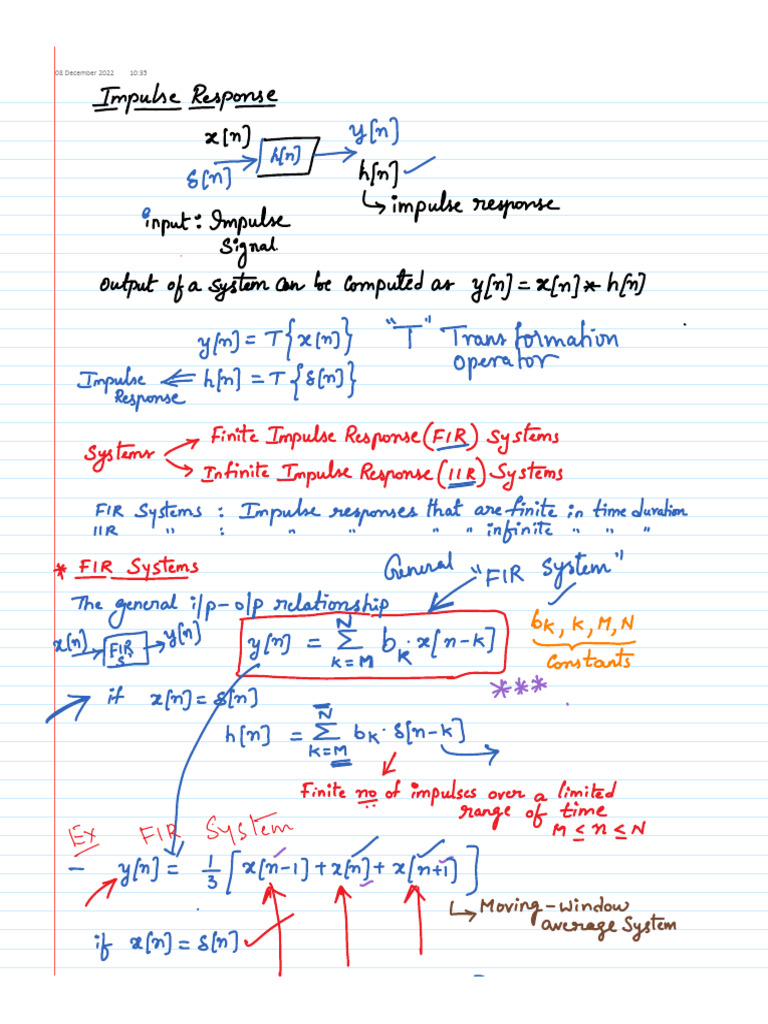 08 December 2022 10:35
Impulse Response
x[n] y[n]
h[n]
δ[n] h[n]
↳ impulse response
input: Impulse
Signal
output of a system can be computed as y[n] = x[n] * h[n]
y[n] = T{x[n]} "T" Transformation
operator
Impulse Response ⇐ h[n] = T{δ[n]}
Systems
Finite Impulse Response (FIR) Systems
Infinite Impulse Response (IIR) Systems
FIR Systems : Impulse responses that are finite in time duration
IIR " : " " " " infinite " " "
* FIR Systems
General "FIR System"
The general i/p-o/p relationship
x[n] FIR S. y[n]
y[n] = Σ_{k=M}^{N} b_k · x[n-k]
b_k, k, M, N
Constants
***
if x[n] = δ[n]
h[n] = Σ_{k=M}^{N} b_k · δ[n-k]
Finite no of impulses over a limited
range of time
M ≤ n ≤ N
Ex FIR System
- y[n] = 1/3 [x[n-1] + x[n] + x[n+1]]
↳ Moving-window
average System
if x[n] = δ[n]